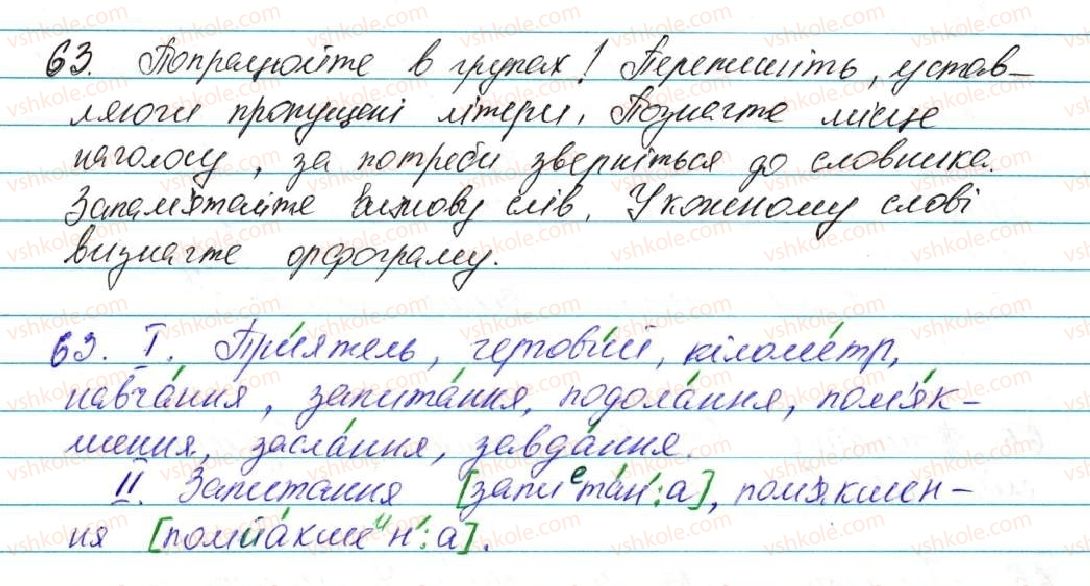 63. Попрацюйте в групах! Перепишіть, устав-
ляючи пропущені літери. Позначте місце
наголосу, за потреби зверніться до словника.
Запам'ятайте вимову слів. У кожному слові
визначте орфограму.
63. I. При́ятель, чергови́й, кіломе́тр,
навча́ння, запита́ння, подола́ння, пом'я́к-
шення, засла́ння, завда́ння.
II. Запитання [запиᵉта́н':а], пом'якшен-
ня [помйа́кшеᴻн':а].